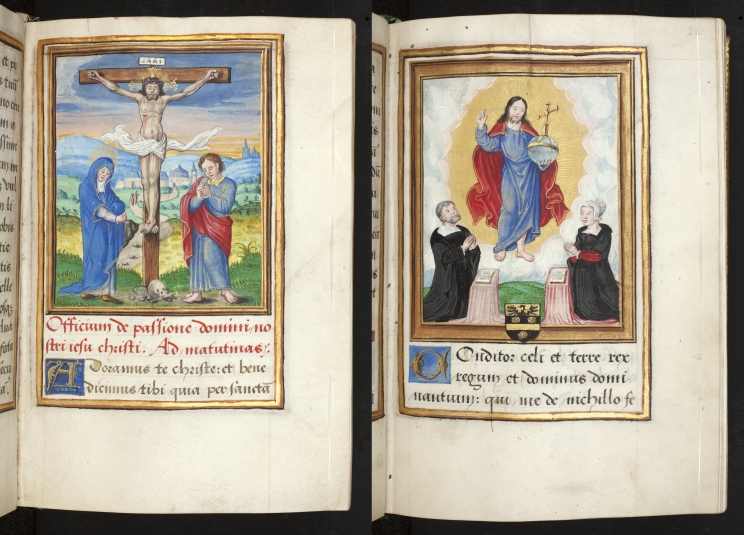 INRI
Officium de passione domini no
stri iesu christi. Ad matutinas.
Adoramus te christe: et bene
dicimus tibi quia per sanctā
Conditor celi et terre rex
regum et dominus domi
nantium: qui me de nichillo fe